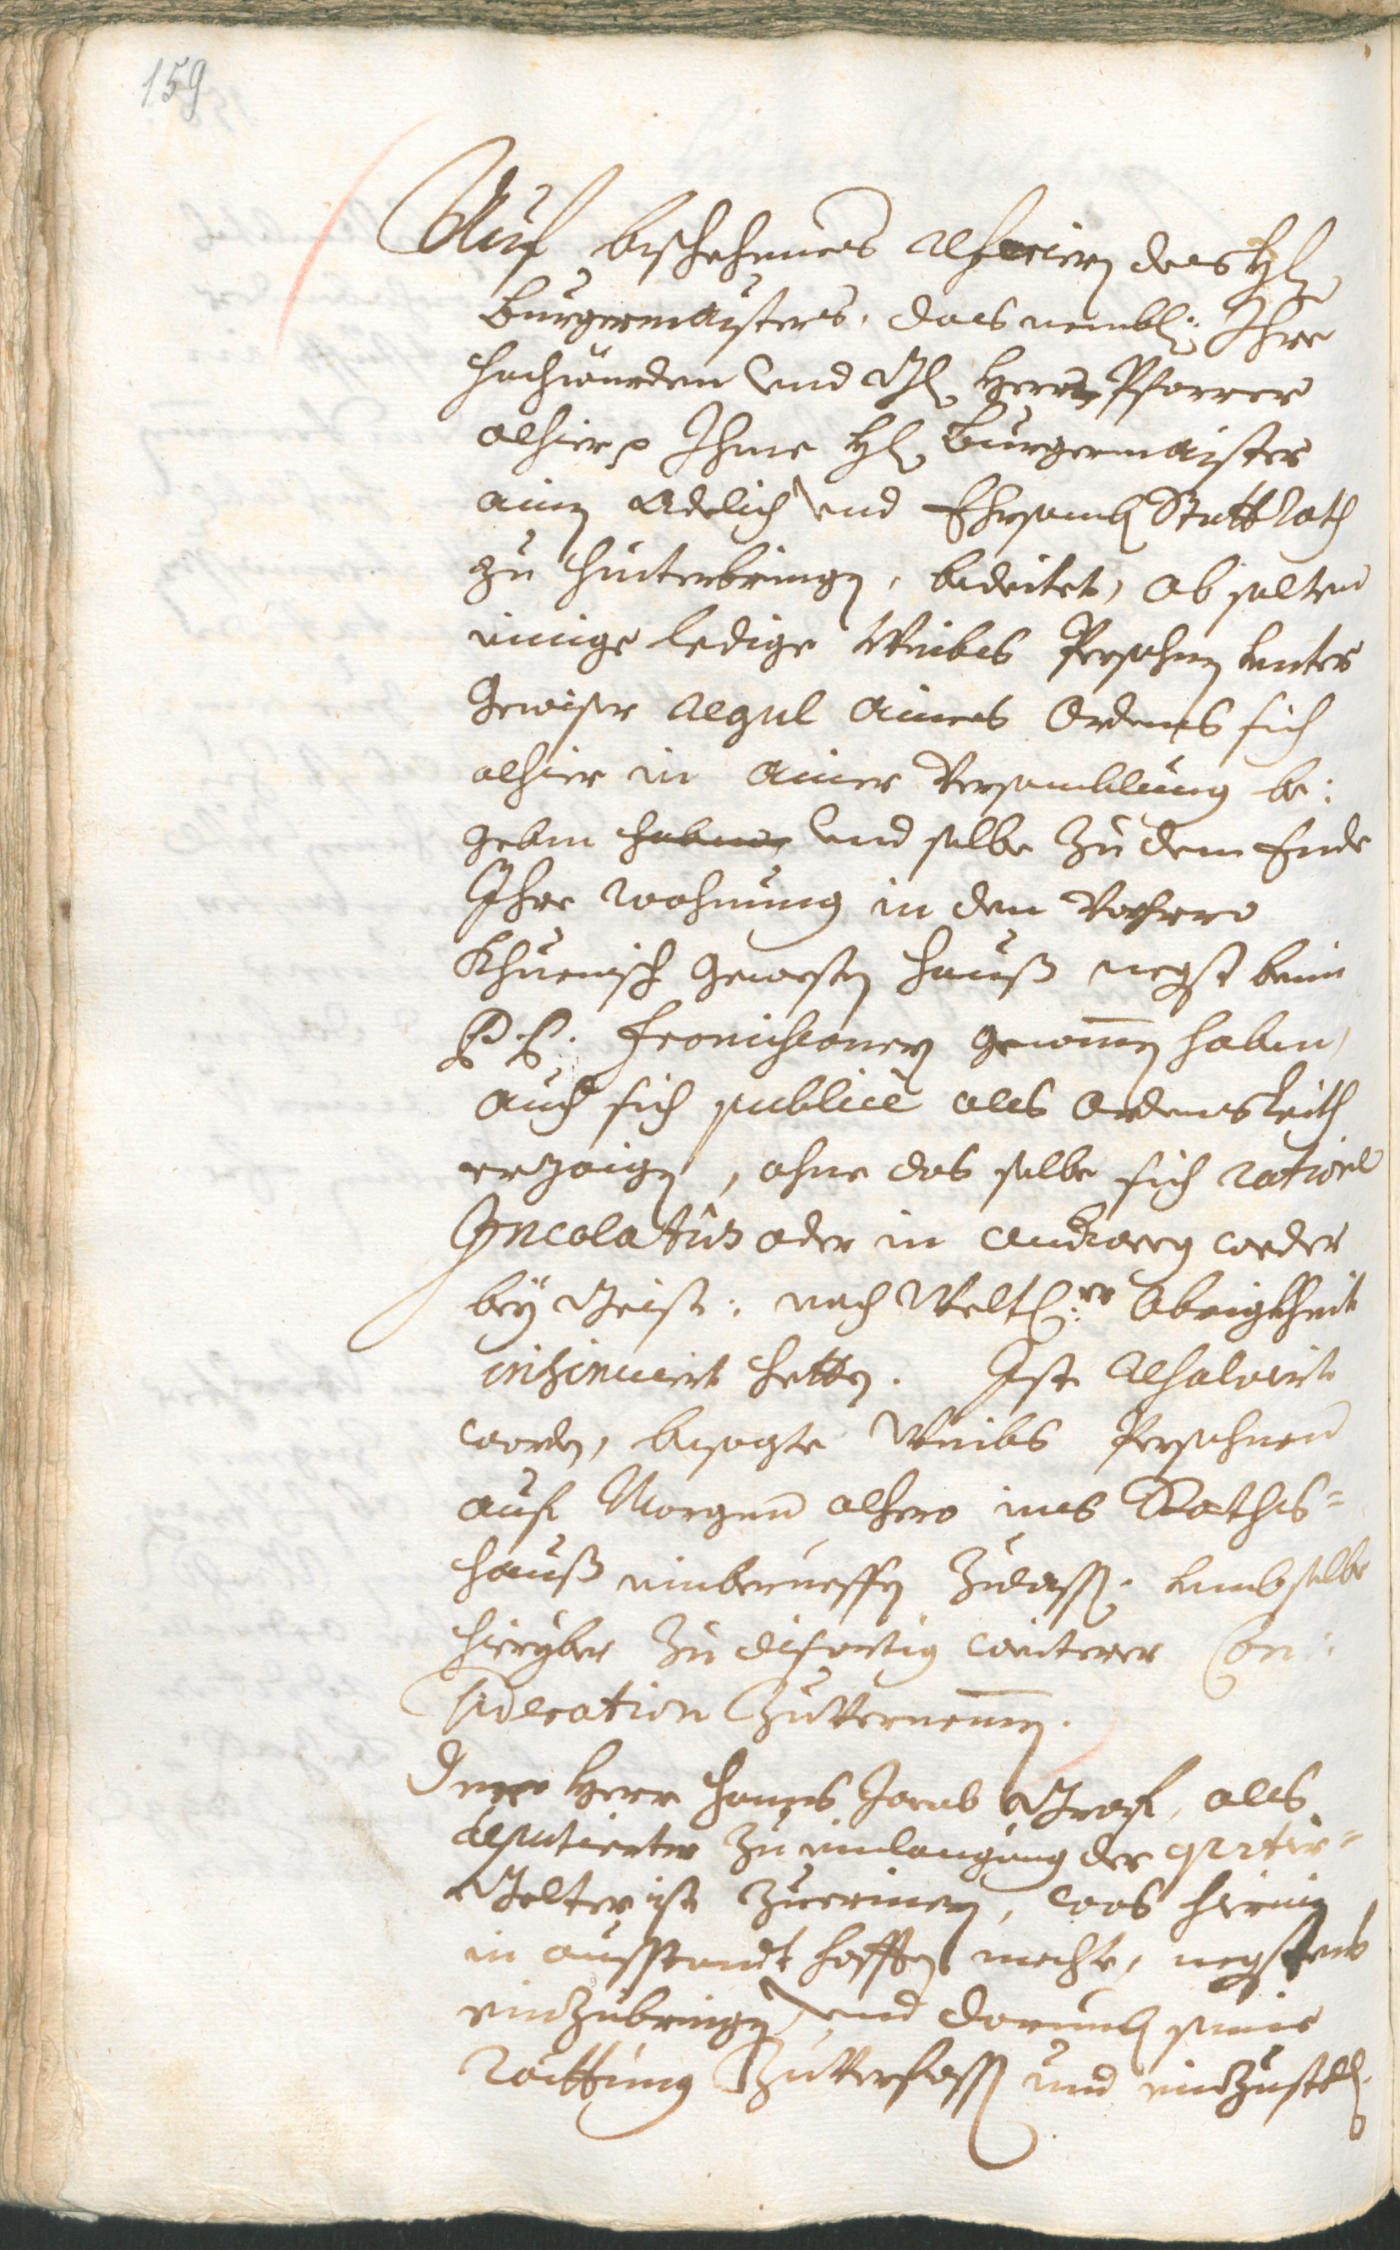 159
Auf beschehenes referiern des Hl
Burgermaisters, das nembl: Ihre
Hochwürden und Gl Herr Pfarrer
alhier Ihme Hl Burgermaister
ainen Adelich und Ehrsamb Stattrath
zu hinterbringen, bedeitet, ob solten
einige ledige Weibs Persohnen unter
gewiser Regul aines Ordens sich
alhier in ainer Versamblung be:
geben haben und selbe zu dem Ende
Ihre wohnung in den vorhero
Khuenisch gewesten Hauß negst denen
P P. Franciscanern genomen haben,
auch sich publicè als Ordensleith
erzaigen, ohne das selbe sich ratione
Incolatûs oder in andweg weder
bey Geist: noch Weltl:er Obrigkheit
insinuiert hetten. Ist resolviert
worden, besagte Weibs Persohnen
auf Morgen alhero ins Rathis=
hauß einberueffen zulassen. umb selbe
hieryber zu disortig weiterer Con:
sideration zuvernemen.
Deme Herr Hanns Jacob Graf, als
deputierter zu einlangung der qrtier=
Gelter ist zuerinern, was hierin
in ausstandt hafften mechte, negstens
einzubringen und darumb seine
raittung zuverfassen und einzustell.